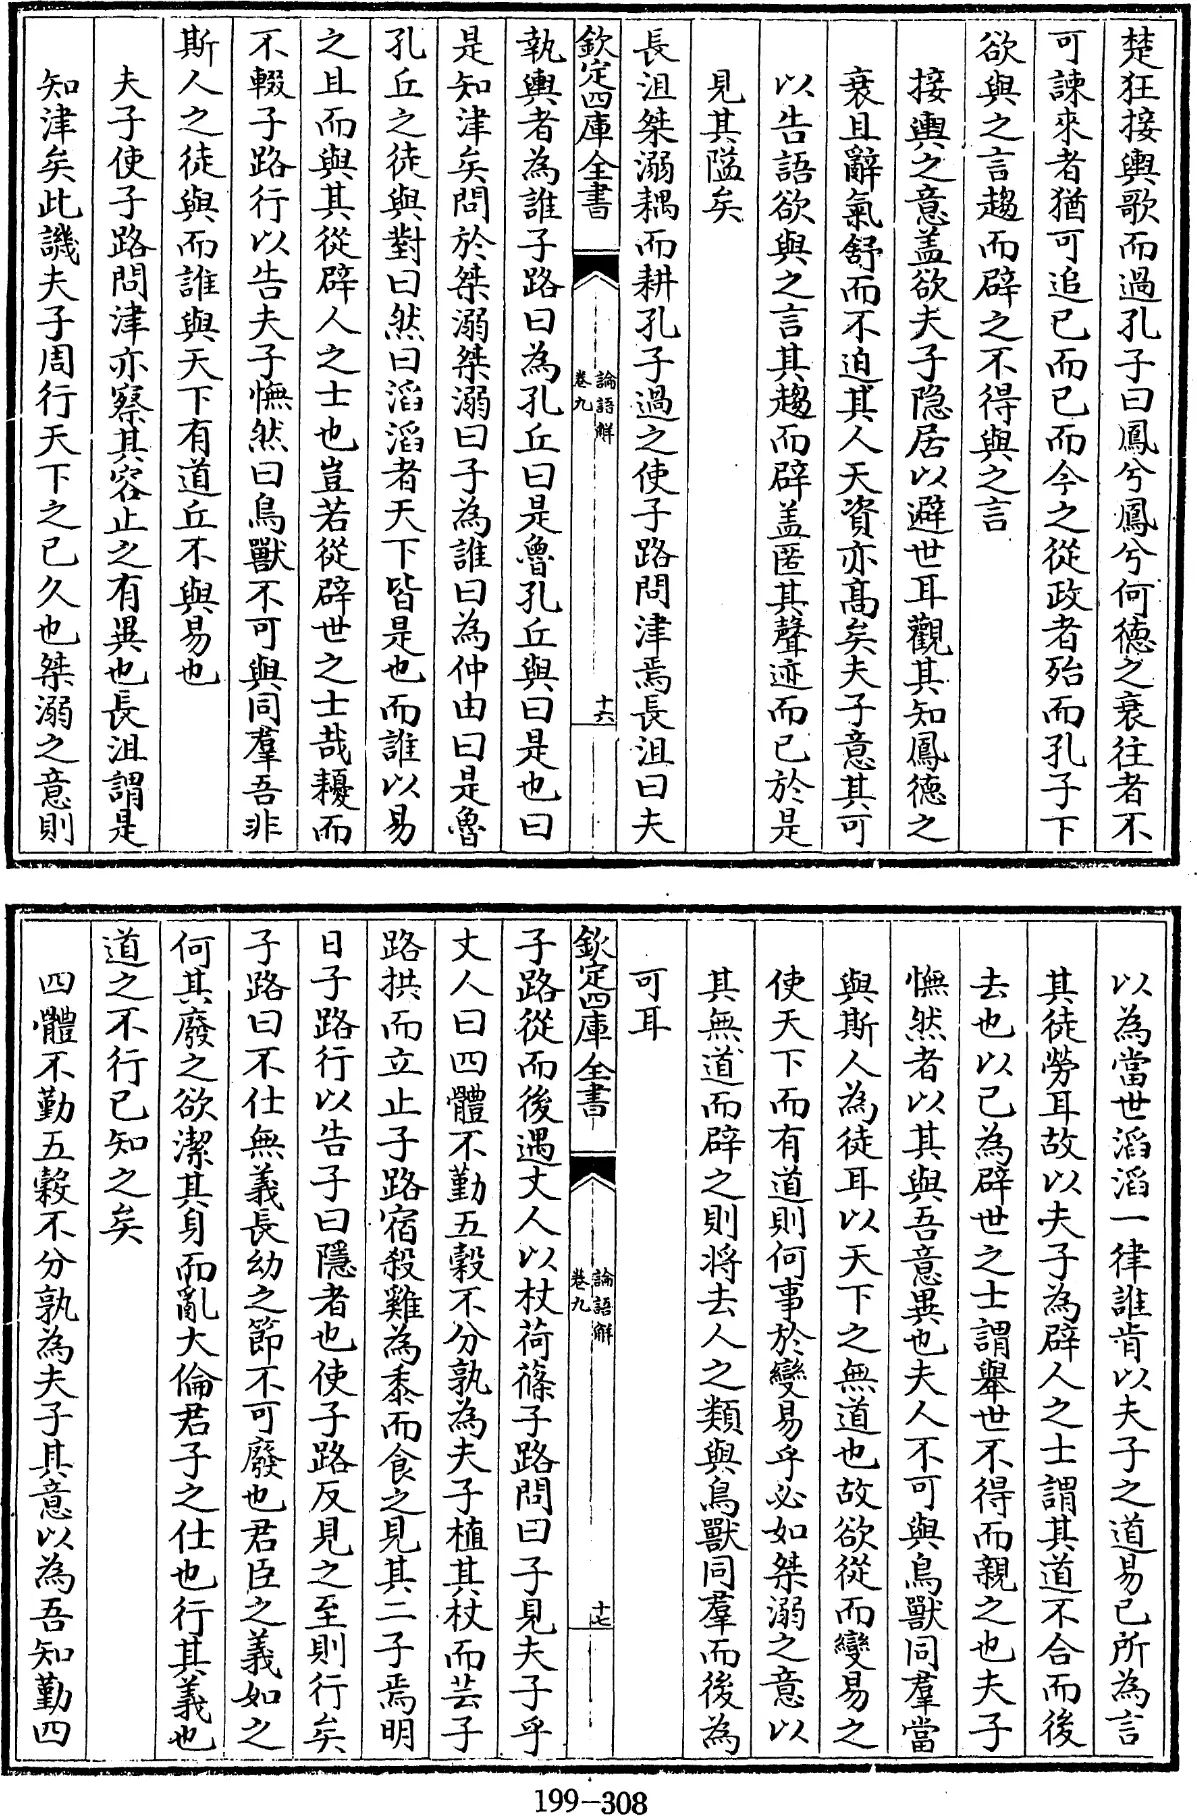 楚狂接輿歌而過孔子曰鳳兮鳳兮何德之衰往者不
可諫來者猶可追已而已而今之從政者殆而孔子下
欲與之言趨而辟之不得與之言
接輿之意盖欲夫子隐居以避世耳觀其知鳳德之
衰且辭氣舒而不迫其人天資亦髙矣夫子意其可
以告語欲與之言其趨而辟盖匿其聲迹而已於是
見其隘矣
長沮桀溺耦而耕孔子過之使子路問津焉長沮曰夫
欽定四庫全書
論語解
卷九
十六
執輿者為誰子路曰為孔丘曰是魯孔丘與曰是也曰
是知津矣問於桀溺桀溺曰子為誰曰為仲由曰是魯
孔丘之徒與對曰然曰滔滔者天下皆是也而誰以易
之且而與其從辟人之士也豈若從辟世之士哉耰而
不輟子路行以告夫子憮然曰鳥獸不可與同羣吾非
斯人之徒與而誰與天下有道丘不與易也
夫子使子路問津亦察其容止之有異也長沮謂是
知津矣此譏夫子周行天下之已久也桀溺之意則
以為當世滔滔一律誰肯以夫子之道易已所為言
其徒勞耳故以夫子為辟人之士謂其道不合而後
去也以已為辟世之士謂舉世不得而親之也夫子
憮然者以其與吾意異也夫人不可與鳥獸同羣當
與斯人為徒耳以天下之無道也故欲從而變易之
使天下而有道則何事於變易乎必如桀溺之意以
其無道而辟之則将去人之類與鳥獸同羣而後為
可耳
欽定四庫全書
論語解
卷九
十七
子路從而後遇丈人以杖荷蓧子路問曰子見夫子乎
丈人曰四體不勤五穀不分孰為夫子植其杖而芸子
路拱而立止子路宿殺雞為黍而食之見其二子焉明
日子路行以告子曰隱者也使子路反見之至則行矣
子路曰不仕無義長幼之節不可廢也君臣之義如之
何其廢之欲潔其身而亂大倫君子之仕也行其義也
道之不行已知之矣
四體不勤五穀不分孰為夫子其意以為吾知勤四
199-308